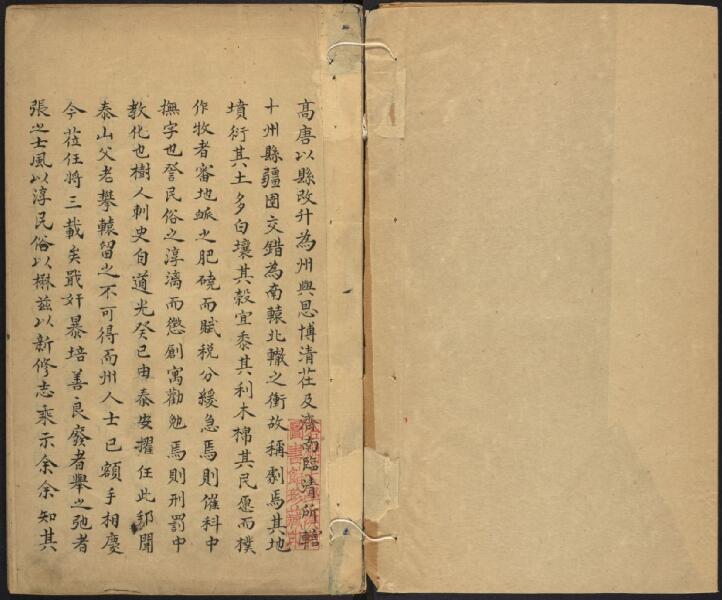 高唐以縣改升為州與恩博清茌及濟南臨清所轄
十州縣疆圉交錯為南轅北轍之衝故稱劇焉其地
墳衍其土多白壤其穀宜黍其利木棉其民愿而樸
作牧者審地脈之肥磽而賦稅分緩急焉則催科中
撫字也詧民俗之淳漓而懲創寓勸勉焉則刑罰中
教化也樹人刺史自道光癸巳由泰安擢任此邦聞
泰山父老攀轅留之不可得而州人士已額手相慶
今蒞任將三載矣戢奸暴培善良廢者舉之弛者
張之士風以淳民俗以楙茲以新修志乘示余余知其
圖書館珍藏印